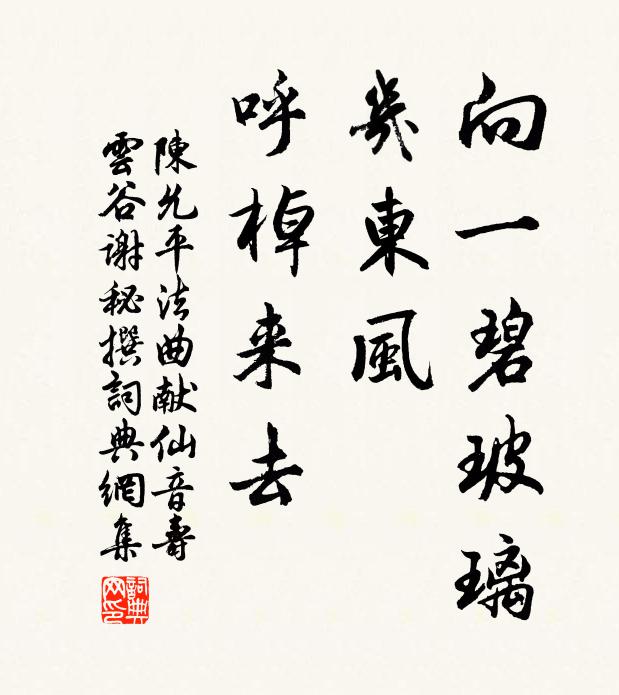 向一碧玻璃
幾東風
呼棹来去
陳允平法曲献仙音壽
雲谷謝秘撰詞典網集
詞典網印